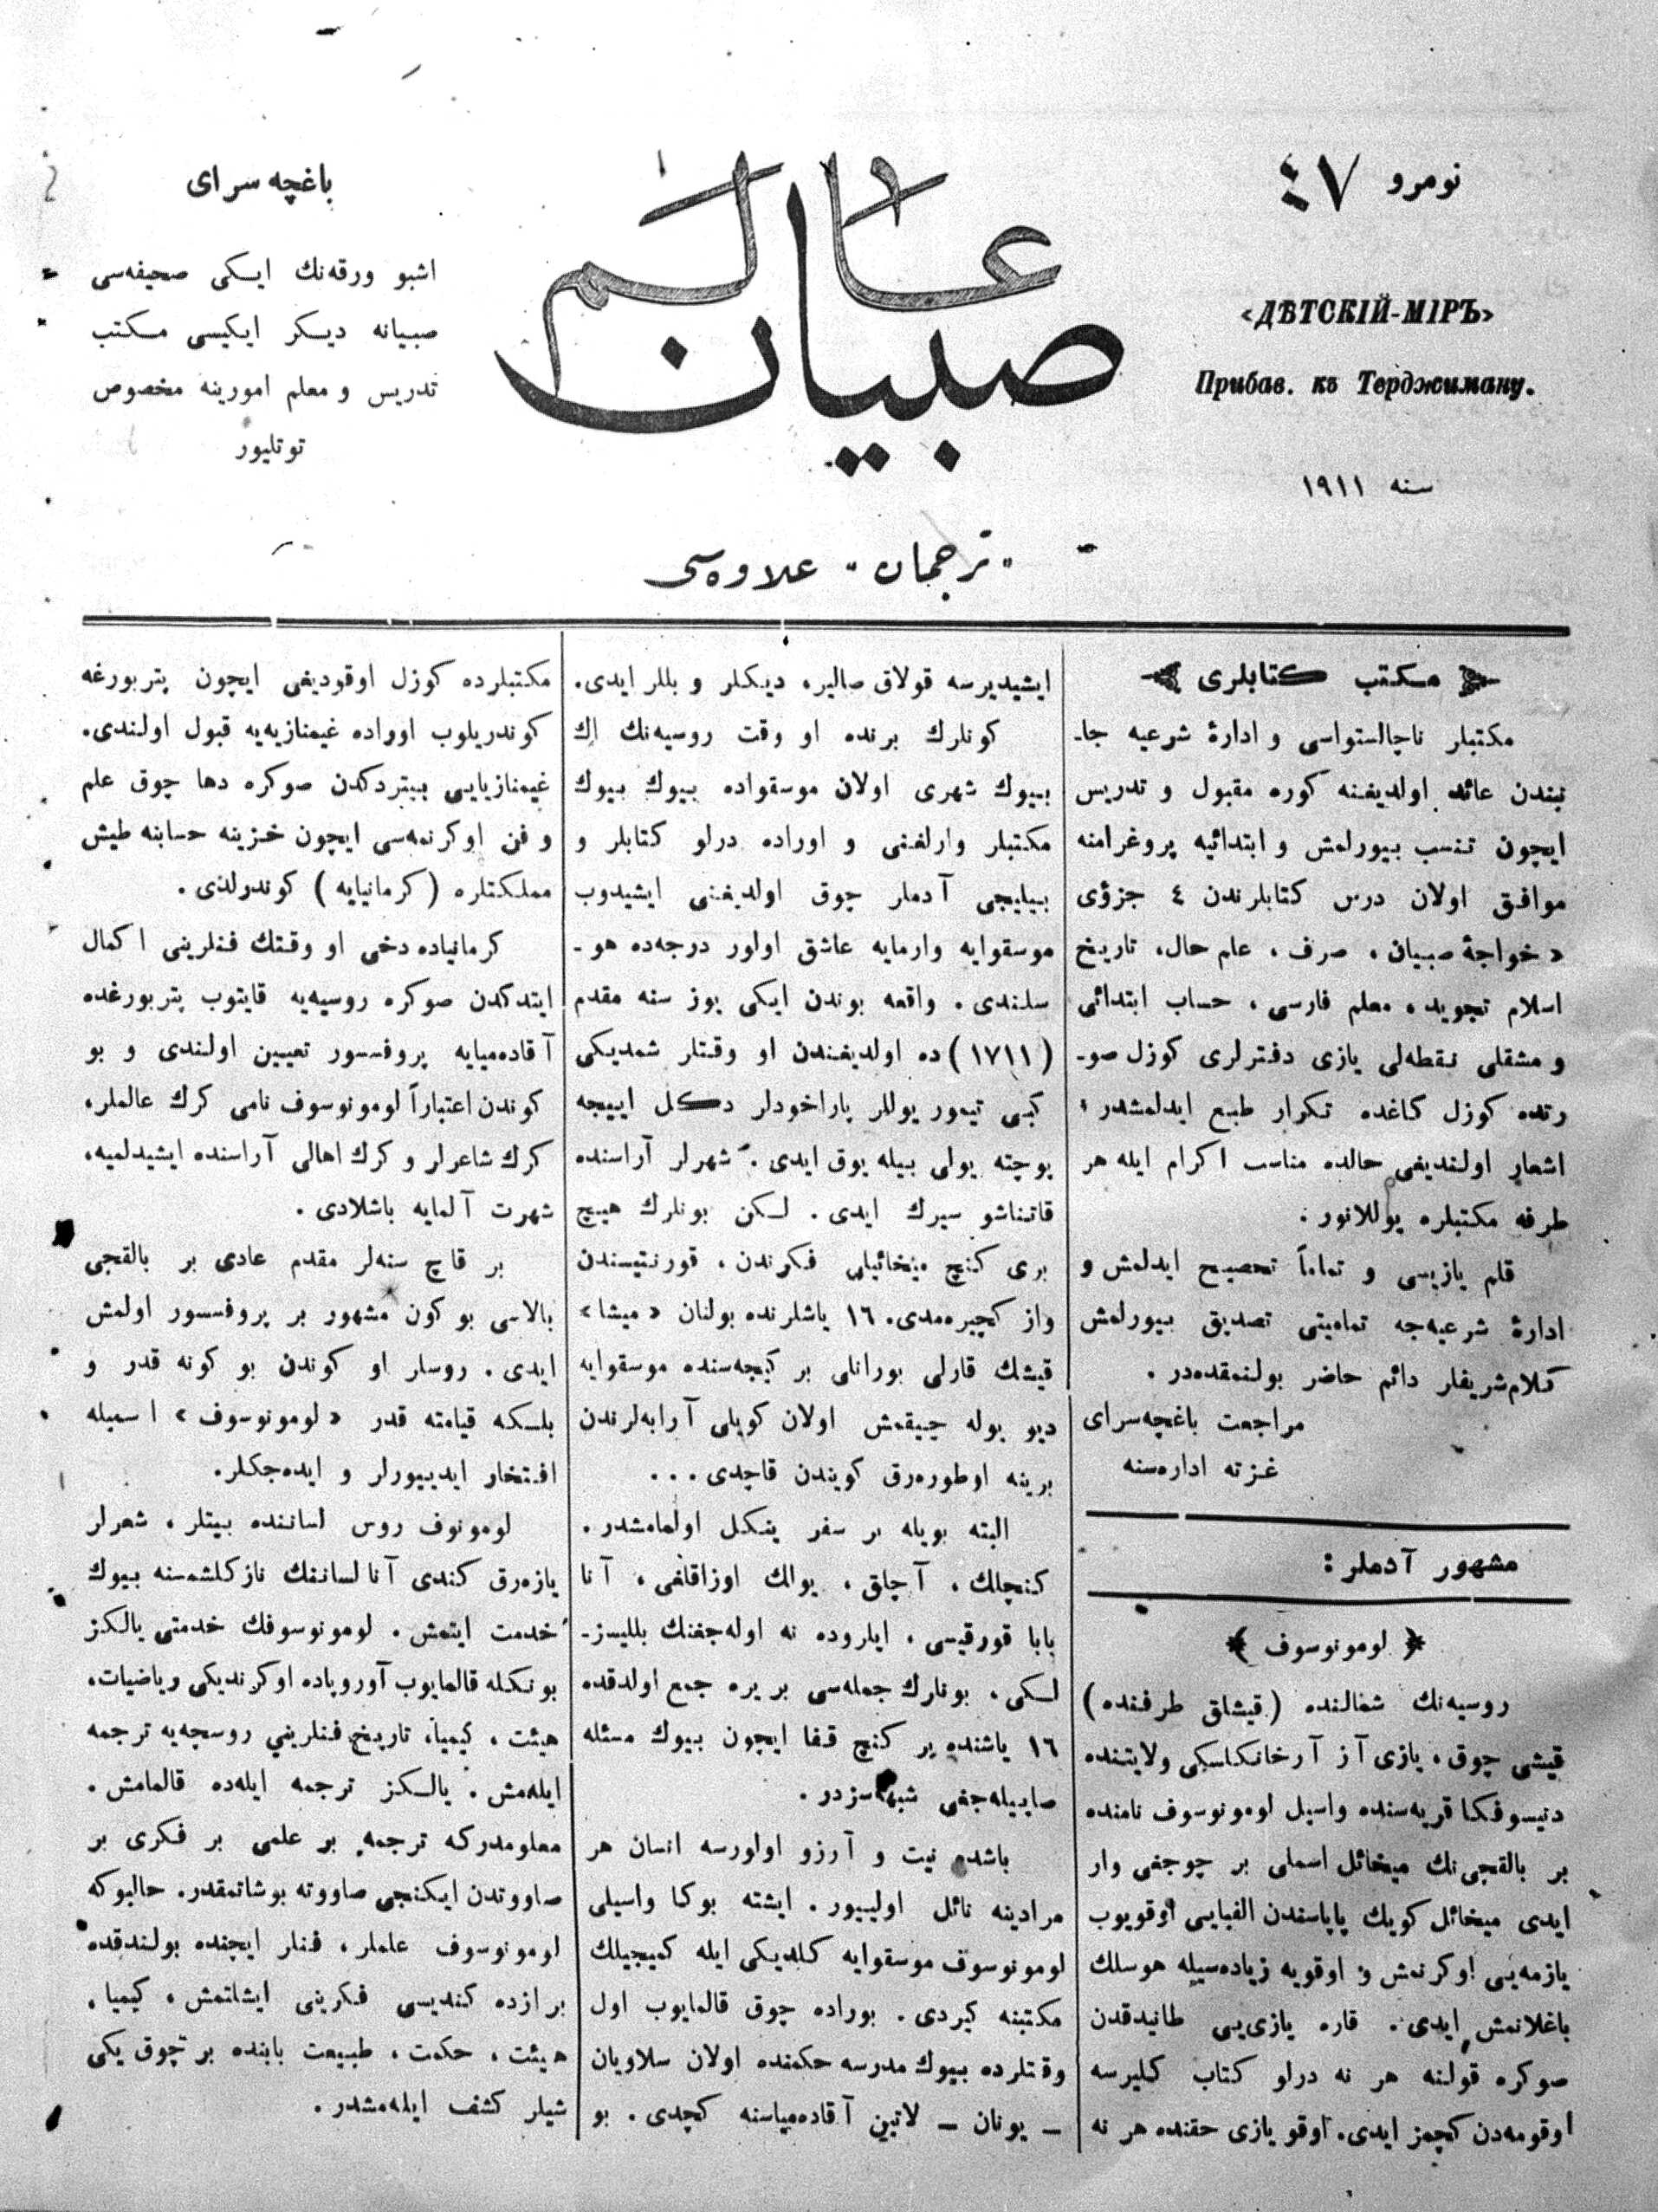 نومرو ٤٧
«ДѢТСКІЙ-МІРЪ»
Прибав. къ Терджиману.
سنه ١٩١١
عالم
صبيان
باغچه سراى
اشبو ورقه‌نك ايكى صحيفه‌سى
صبيانه ديكر ايكيسى مكتب
تدريس و معلم امورينه مخصوص
توتليور
"ترجمان" علاوه‌سى
مكتب كتابلرى
مكتبلر ناچالستواسى و ادارۀ شرعيه جا-
نبندن عائد اولديغنه كوره مقبول و تدريس
ايچون تنسب بيورلمش و ابتدائيه پروغرامنه
موافق اولان درس كتابلرندن ٤ جزؤى
«خواجۀ صبيان، صرف، علم حال، تاريخ
اسلام تجويد، معلم فارسى، حساب ابتدائى
و مشقلى نقطه‌لى يازى دفترلرى كوزل صو-
رتده كوزل كاغده تكرار طبع ايدلمشدر؛
اشعار اولنديغى حالده مناسب اكرام ايله هر
طرفه مكتبلره يوللانور.
قلم يازيسى و تماماً تصحيح ايدلمش و
ادارۀ شرعيه‌جه تماميتى تصديق بيورلمش
كلام‌شريفلر دائم حاضر بولنمقده‌در.
مراجعت باغچه‌سراى
غزته اداره‌سنه
مشهور آدملر:
﴿ لومونوسوف ﴾
روسيه‌نك شمالنده (قيشاق طرفنده)
قيشى چوق، يازى آز آرخانكلسكى ولايتنده
دنيسوفكا قريه‌سنده واسيل لومونوسوف نامنده
بر بالقچى‌نك ميخائل اسملى بر چوجغى وار
ايدى ميخائل كويك پاپاسندن الفبايى اوقويوب
يازمه‌يى اوكرنمش و اوقويه زياده‌سيله هوسلك
باغلانمش ايدى. قاره يازى‌يى طانيدقدن
صوكره قولنه هر نه درلو كتاب كليرسه
اوقومه‌دن كچمز ايدى. اوقو يازى حقنده هر نه
ايشيديرسه قولاق صالير، ديكلر و بللر ايدى.
كونلرك برنده او وقت روسيه‌نك اك
بيوك شهرى اولان موسقواده بيوك بيوك
مكتبلر وارلغنى و اوراده درلو كتابلر و
بيليجى آدملر چوق اولديغنى ايشيدوب
موسقوايه وارمايه عاشق اولور درجه‌ده هو-
سلندى. واقعه بوندن ايكى يوز سنه مقدم
(١٧١١)ده اولديغندن او وقتلر شمديكى
كبى تيمور يوللر پاراخودلر دكل اييجه
پوچته يولى بيله يوق ايدى. شهرلر آراسنده
قاتناشو سيرك ايدى. لكن بونلرك هيچ
برى كنچ ميخائيلى فكرندن، قورنتيسندن
واز كچيره‌مدى. ١٦ ياشلرنده بولنان «ميشا»
قيشك قارلى بورانلى بر كيجه‌سنده موسقوايه
ديو يوله چيقمش اولان كويلى آرابه‌لرندن
برينه اوطوره‌رق كويندن قاچدى...
البته بويله بر سفر ينكل اولمامشدر.
كنچلك، آچلق، يولك اوزاقلغى، آنا
بابا قورقيسى، ايلروده نه اوله‌جغنك بلليسز-
لكى، بونلرك جمله‌سى بر يره جمع اولدقده
١٦ ياشنده بر كنچ قفا ايچون بيوك مسئله
صاييله‌جغى شبهه‌سزدر.
باشده نيت و آرزو اولورسه انسان هر
مرادينه نائل اولييور. ايشته بوكا واسيلى
لومونوسوف موسقوايه كلديكى ايله كيجيلك
مكتبنه كيردى. بوراده چوق قالمايوب اول
وقتلرده بيوك مدرسه حكمنده اولان سلاويان
- يونان - لاتين آقاده‌مياسنه كچدى. بو
مكتبلرده كوزل اوقوديغى ايچون پتربورغه
كوندريلوب اوراده غيمنازيه‌يه قبول اولندى.
غيمنازيايى بيتردكدن صوكره دها چوق علم
و فن اوكرنمه‌سى ايچون خزينه حسابنه طيش
مملكتلره (كرمانيايه) كوندرلدى.
كرمانياده دخى او وقتك فنلرينى اكمال
ايتدكدن صوكره روسيه‌يه قايتوب پتربورغده
آقاده‌ميايه پروفسسور تعيين اولندى و بو
كوندن اعتباراً لومونوسوف نامى كرك عالملر،
كرك شاعرلر و كرك اهالى آراسنده ايشيدلميه،
شهرت آلمايه باشلادى.
بر قاچ سنه‌لر مقدم عادى بر بالقچى
بالاسى بو كون مشهور بر پروفسسور اولمش
ايدى. روسلر او كوندن بو كونه قدر و
بلسكه قيامته قدر «لومونوسوف» اسميله
افتخار ايدييورلر و ايده‌جكلر.
لومونوف روس لساننده بيتلر، شعرلر
يازه‌رق كندى آنا لساننك نازكلشمسنه بيوك
خدمت ايتمش. لومونوسوفك خدمتى يالكز
بونكله قالمايوب آوروپاده اوكرنديكى رياضيات،
هيئت، كيميا، تاريخ فنلريني روسچه‌يه ترجمه
ايله‌مش. يالكز ترجمه ايله‌ده قالمامش.
معلومدركه ترجمه بر علمى بر فكرى بر
صاووتدن ايكنجى صاووته بوشاتمقدر. حالبوكه
لومونوسوف علملر، فنلر ايچنده بولندقده
برازده كنديسى فكرينى ايشلتمش، كيميا،
هيئت، حكمت، طبيعت بابنده بر چوق يكى
شيلر كشف ايله‌مشدر.